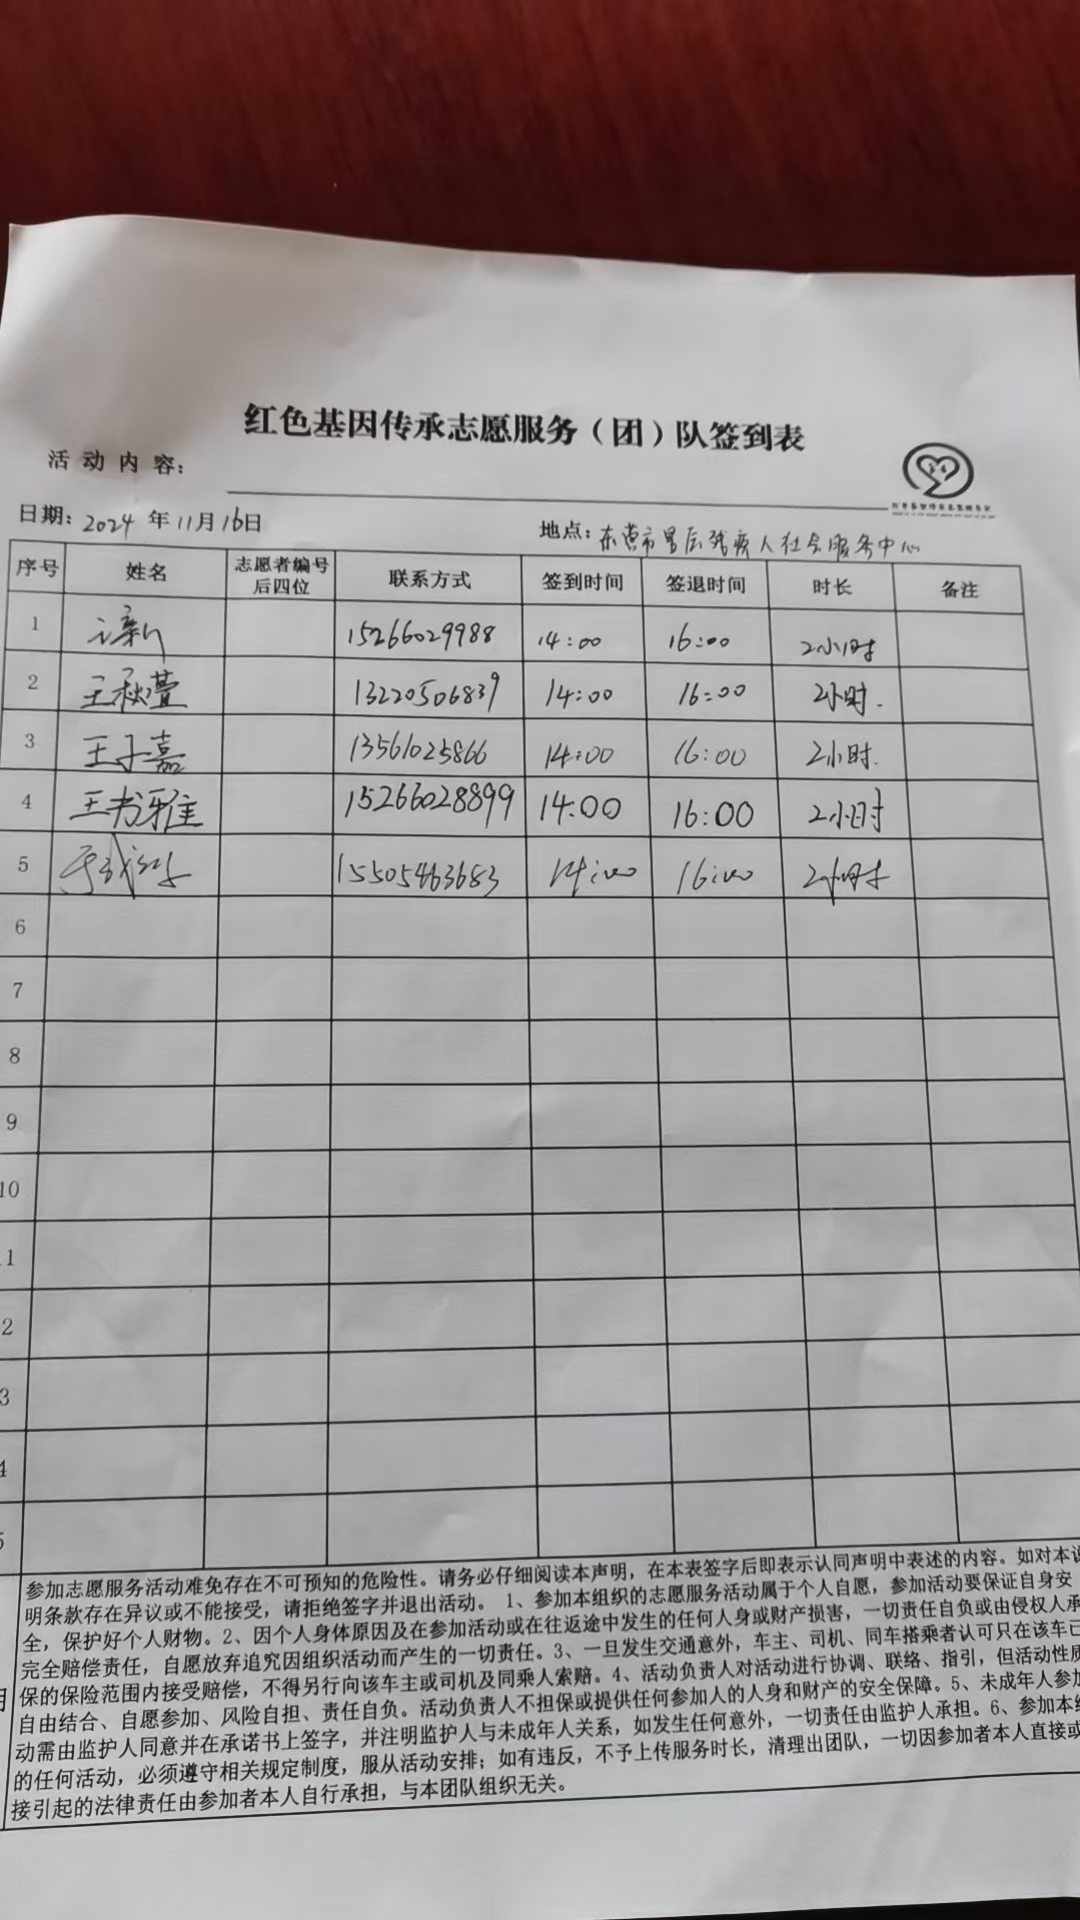 红色基因传承志愿服务（团）队签到表
活动内容：
日期：2024年11月16日 地点：东营市星辰残疾人社会服务中心
序号 姓名 志愿者编号后四位 联系方式 签到时间 签退时间 时长 备注
1 15266029988 14:00 16:00 2小时
2 王秋萱 13220506839 14:00 16:00 2小时.
3 王子嘉 13561025866 14:00 16:00 2小时.
4 王书雅 15266028899 14:00 16:00 2小时
5 15505463683 14:00 16:00 2小时
6
7
8
9
10
1
2
3
4
5
参加志愿服务活动难免存在不可预知的危险性。请务必仔细阅读本声明，在本表签字后即表示认同声明中表述的内容。如对本说
明条款存在异议或不能接受，请拒绝签字并退出活动。 1、参加本组织的志愿服务活动属于个人自愿，参加活动要保证自身安
全，保护好个人财物。2、因个人身体原因及在参加活动或在往返途中发生的任何人身或财产损害，一切责任自负或由侵权人承
完全赔偿责任，自愿放弃追究因组织活动而产生的一切责任。3、一旦发生交通意外，车主、司机、同车搭乘者认可只在该车已
保的保险范围内接受赔偿，不得另行向该车主或司机及同乘人索赔。4、活动负责人对活动进行协调、联络、指引，但活动性质
自由结合、自愿参加、风险自担、责任自负。活动负责人不担保或提供任何参加人的人身和财产的安全保障。5、未成年人参加
动需由监护人同意并在承诺书上签字，并注明监护人与未成年人关系，如发生任何意外，一切责任由监护人承担。6、参加本组
的任何活动，必须遵守相关规定制度，服从活动安排；如有违反，不予上传服务时长，清理出团队，一切因参加者本人直接或
接引起的法律责任由参加者本人自行承担，与本团队组织无关。